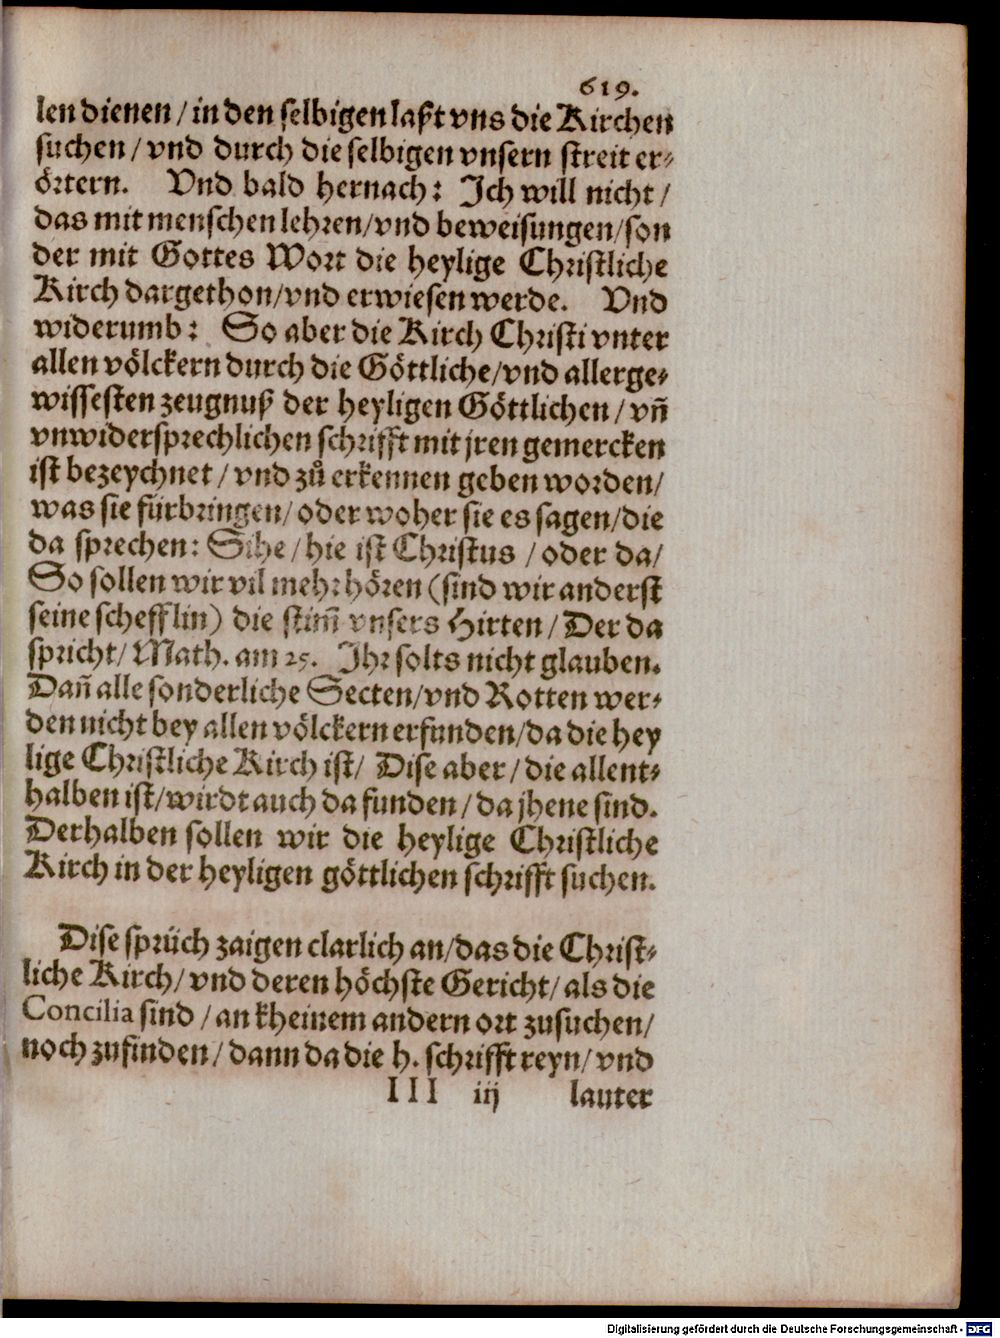 619.
len dienen / in den selbigen laßt vns die Kirchen
suchen / vnd durch die selbigen vnsern streit er⸗
örtern. Vnd bald hernach: Ich will nicht /
das mit menschen lehren / vnd beweisungen / son
der mit Gottes Wort die heylige Christliche
Kirch dargethon / vnd erwiesen werde. Vnd
widerumb: So aber die Kirch Christi vnter
allen völckern durch die Göttliche / vnd allerge⸗
wissesten zeugnuß der heyligen Göttlichen / vñ
vnwidersprechlichen schrifft mit jren gemercken
ist bezeychnet / vnd zů erkennen geben worden /
was sie fürbringen / oder woher sie es sagen / die
da sprechen: Sihe / hie ist Christus / oder da /
So sollen wir vil mehr hören (sind wir anderst
seine schefflin) die stim̃ vnsers Hirten / Der da
spricht / Math. am 25. Ihr solts nicht glauben.
Dañ alle sonderliche Secten / vnd Rotten wer⸗
den nicht bey allen völckern erfunden / da die hey
lige Christliche Kirch ist / Dise aber / die allent⸗
halben ist / wirdt auch da funden / da jhene sind.
Derhalben sollen wir die heylige Christliche
Kirch in der heyligen göttlichen schrifft suchen.
Dise sprüch zaigen clarlich an / das die Christ⸗
liche Kirch / vnd deren höchste Gericht / als die
Concilia sind / an kheinem andern ort zusuchen /
noch zufinden / dann da die h. schrifft reyn / vnd
III iij lauter
Digitalisierung gefördert durch die Deutsche Forschungsgemeinschaft - DFG